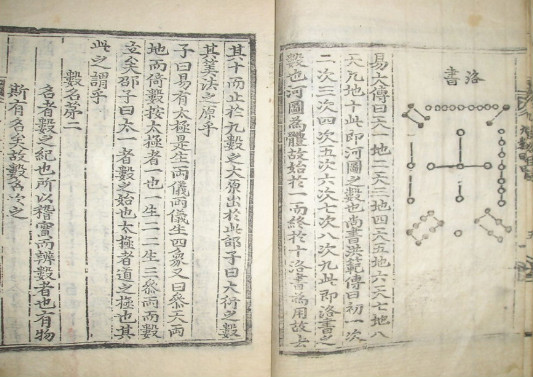 洛書
易大傳曰天一地二天三地四天五地六天七地八
天九地十此即河圖之數也尚書洪範傳曰初一次
二次三次四次五次六次七次八次九此即洛書之
數也河圖爲體故始於一而終於十洛書爲用故去
其十而止於九數之大原出於此邵子曰大衍之數
其筭法之原乎
子曰易有太極是生兩儀兩儀生四象又曰叅天兩
地而倚數按太極者一也一生二二生三叅兩而數
立矣邵子曰太一者數之始也太極者道之極也其
此之謂乎
數名第二
名者數之紀也所以稽實而辨數者也有物
斯有名矣故數名次之